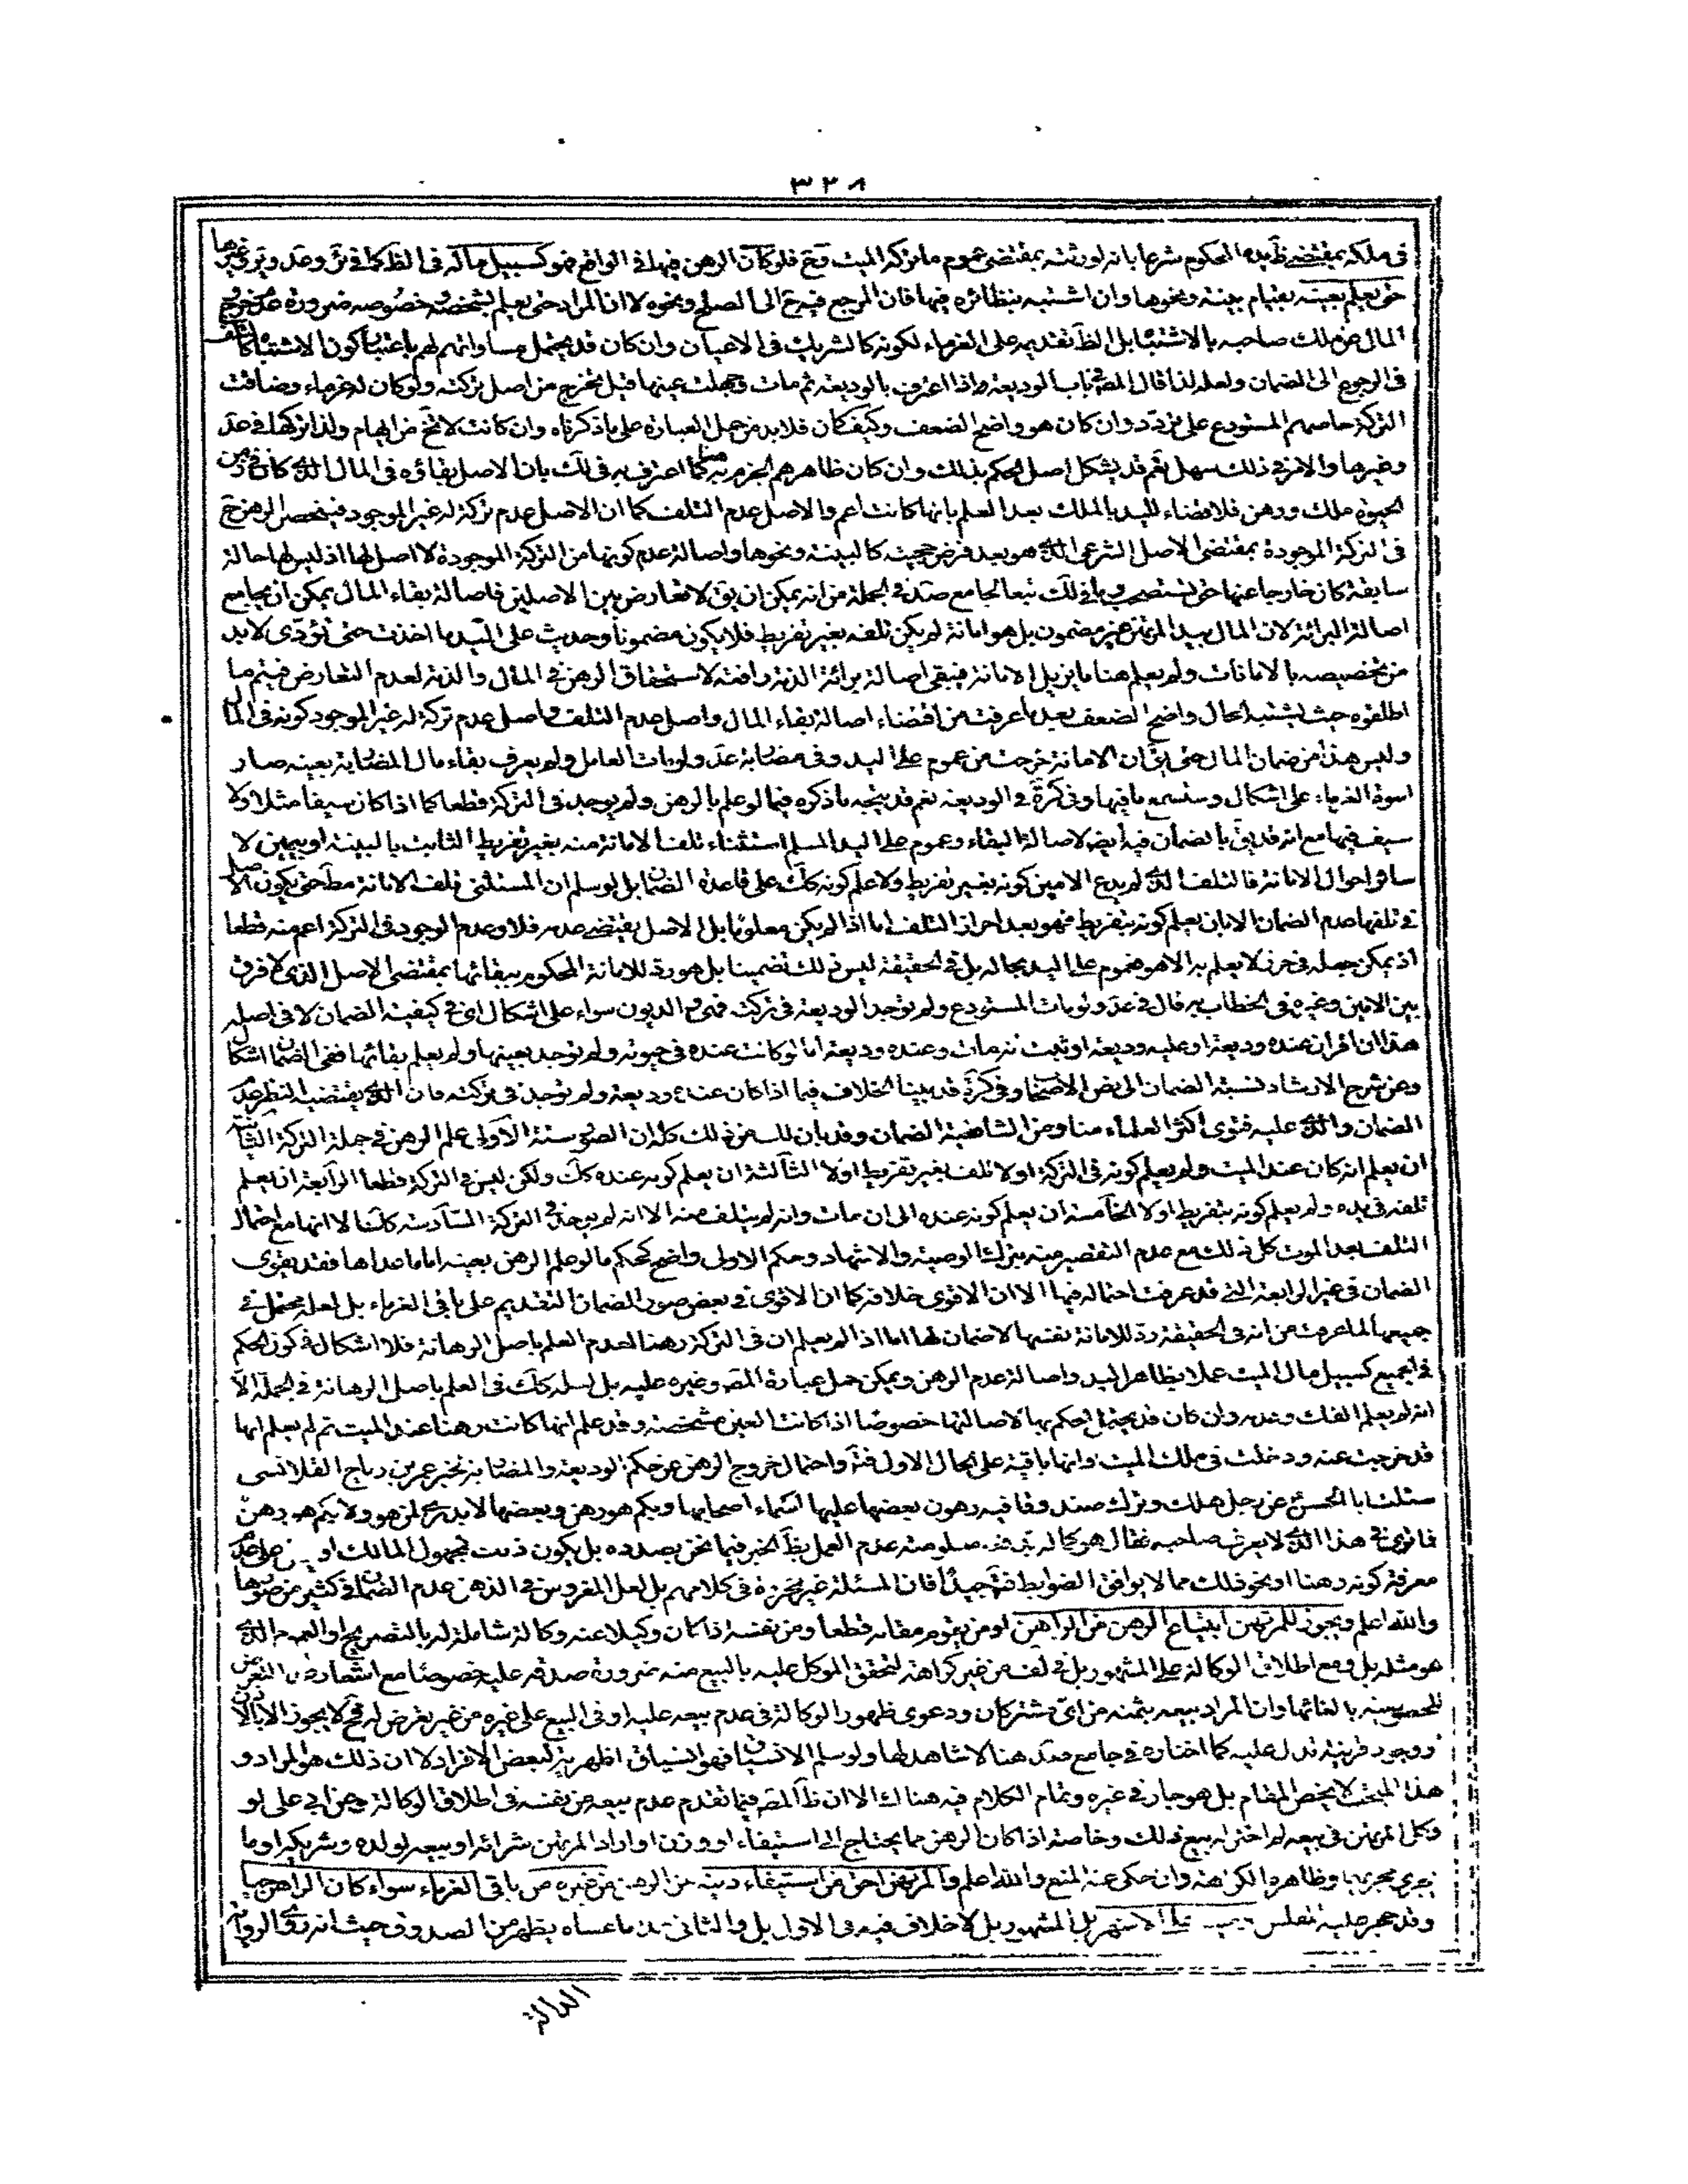 ٣٢٨
فى ملكه بمقتضى ظ يده المحكوم شرعا بانه لورثته بمقتضى عموم ما تركه الميت فح فلو كان الرهن فيها فى الواقع فهو كسبيل ماله فى الظ كما فى وعد وير وغيرها
حتى يعلم بعينه بقيام بينة ونحوها وان اشتبه بنظائره فيها فان المرجع فيه ح الى الصلح ونحوه لا ان المراد حتى يعلم بشخصه وخصوصه ضرورة عدم خروج
المال عن ملك صاحبه بالاشتباه بل الظ تقديمه على الغرماء لكونه كالشريك فى الاعيان وان كان قد يحتمل مساواتهم لهم باعتبار كون الاشتباه كالتلف
فى الرجوع الى الضمان ولعله لذا قال المص فى باب الوديعة واذا اعترف بالوديعة ثم مات وجهلت عينها قيل تخرج من اصل تركته ولو كان له غرماء وضاقت
التركة حاصهم المستودع على تردد وان كان هو واضح الضعف وكيف كان فلا بد من حمل العبارة على ما ذكرناه وان كانت لا تخ من ابهام ولذا تركها فى عد
وغيرها والامر فى ذلك سهل نعم قد يشكل اصل الحكم بذلك وان كان ظاهرهم الجزم به كما اعترف به فى لك بان الاصل بقاؤه فى المال الذى كان فى زمن
الحيوة ملك ورهن فلا قضاء لليد بالملك بعد العلم بانها كانت اعم والاصل عدم التلف كما ان الاصل عدم تركة له غير الموجود فينحصر الرهن ح
فى التركة الموجودة بمقتضى الاصل الشرعى الذى هو بعد فرض حجيته كالبينة ونحوها واصالة عدم كونها من التركة الموجودة لا اصل لها اذ ليس لها حالة
سابقة كان خارجا عنها حتى تستصحب وما فى لك تبعا لجامع صد فى الجملة من انه يمكن ان يق لا تعارض بين الاصلين فاصالة بقاء المال يمكن ان يجامع
اصالة البرائة لان المال بيد المرتهن غير مضمون بل هو امانة لم يكن تلفه بغير تفريط فلا يكون مضمونا وحديث على اليد ما اخذت حتى تؤدى لا بد
من تخصيصه بالامانات ولم يعلم هنا ما يزيل الامانة فيبقى اصالة برائة الذمة رافعة لاستحقاق الرهن فى المال والذمة لعدم التعارض فيتم ما
اطلقوه حيث يشتبه الحال واضح الضعف بعد ما عرفت من اقتضاء اصالة بقاء المال واصل عدم التلف واصل عدم تركة له غير الموجود كونه فى المال
وليس هذا من ضمان المال حتى يق ان الامانة خرجت من عموم على اليد وفى مضاربة عد ولو مات العامل ولم يعرف بقاء مال المضاربة بعينه صار
اسوة الغرماء على اشكال وستسمع ما فيها وفى كرة فى الوديعة نعم قد يتجه ما ذكره فيما لو علم بالرهن ولم يوجد فى التركة قطعا كما اذا كان سيفا مثلا ولا
سيف فيها مع انه قد يق بالضمان فيه ايض لاصالة البقاء وعموم على اليد المسلم استثناء تلف الامانة منه بغير تفريط الثابت بالبينة او بيمين لا
سائر احوال الامانة فالتلف الذى لم يدع الامين كونه بغير تفريط ولا علم كونه كك على قاعدة الضمان بل لو سلم ان المستثنى تلف الامانة مط حتى يكون الاصل
فى تلفها عدم الضمان الا بان يعلم كونه بتفريط فهو بعد احراز التلف اما اذا لم يكن معلوما بل الاصل يقتضى عدمه فلا وعدم الوجود فى التركة اعم منه قطعا
اذ يمكن جعله فى حرز لا يعلم به الا هو فعموم على اليد بحاله بل فى الحقيقة ليس ذلك تضمينا بل هو رد للامانة المحكوم ببقائها بمقتضى الاصل الذى لا فرق
بين الامين وغيره فى الخطاب به قال فى عد ولو مات المستودع ولم توجد الوديعة فى تركته فهى والديون سواء على اشكال اى فى كيفية الضمان لا فى اصله
هذا ان اقر ان عنده وديعة او عليه وديعة او ثبت انه مات وعنده وديعة اما لو كانت عنده فى حيوته ولم توجد بعينها ولم يعلم بقائها ففى الضمان اشكال
وعن شرح الارشاد نسبة الضمان الى نص الاصحاب وفى كرة قد بينا الخلاف فيما اذا كان عنده وديعة ولم توجد فى تركته وان الذى يقتضيه النظر عدم
الضمان والذى عليه فتوى اكثر العلماء منا ومن الشافعية الضمان وقد بان لك من ذلك كله ان الصور ستة الاولى علم الرهن فى جملة التركة الثانية
ان يعلم انه كان عند الميت ولم يعلم كونه فى التركة او لا تلف بغير تفريط او لا الثالثة ان يعلم كونه عنده كك ولكن ليس فى التركة قطعا الرابعة ان يعلم
تلفه فى يده ولم يعلم كونه بتفريط او لا الخامسة ان يعلم كونه عنده الى ان مات وانه لم يتلف منه الا انه لم يوجد فى التركة السادسة كك الا انها مع احتمال
التلف بعد الموت كل ذلك مع عدم التقصير منه بترك الوصية والاشهاد وحكم الاولى واضح كحكم ما لو علم الرهن بعينه اما ما عداها فقد يقوى
الضمان فى غير الرابعة التى قد عرفت احتماله فيها الا ان الاقوى خلافه كما ان الاقوى فى بعض صور الضمان التقديم على باقى الغرماء بل لعله محتمل فى
جميعها لما عرفت من انه فى الحقيقة رد للامانة نفسها لا ضمان لها اما اذا لم يعلم ان فى التركة رهنا لعدم العلم باصل الرهانة فلا اشكال فى كون الحكم
فى الجميع كسبيل مال الميت عملا بظاهر اليد واصالة عدم الرهن ويمكن حمل عبارة المص وغيره عليه بل لعله كك فى العلم باصل الرهانة فى الجملة الا
انه لم يعلم الفك وعدمه وان كان قد يتجه الحكم بها لاصالتها خصوصا اذا كانت العين مشخصة وقد علم انها كانت رهنا عند الميت ثم لم يعلم انها
قد خرجت عنه ودخلت فى ملك الميت وانها باقية على الحال الاول فت واحتمال خروج الرهن عن حكم الوديعة والمضاربة بخبر عمر بن رباح القلانسى
سئلت ابا الحسن ع عن رجل هلك وترك صندوقا فيه رهون بعضها عليها اسماء اصحابها وبكم هو رهن وبعضها لا يدرى لمن هو ولا بكم هو رهن
فما ترى فى هذا الذى لا يعرف صاحبه فقال هو كماله عدم العمل بظ الخبر فيما نحن بصدده بل يكون ذلك مجهول المالك او
معرفة كونه رهنا او نحو ذلك مما لا يوافق الضوابط فت جيدا فان المسئلة غير محررة فى كلامهم بل لعل المغروس فى الذهن عدم الضمان فى كثير من صورها
والله اعلم ويجوز للمرتهن ابتياع الرهن من الراهن او من يقوم مقامه قطعا ومن نفسه اذا كان وكيلا عنه وكالة شاملة له بالتصريح او العموم الذى
هو مثله بل ومع اطلاق الوكالة على المشهور بل فى لف من غير كراهة لتحقق الموكل عليه بالبيع منه ضرورة صدقه عليه خصوصا مع اشعاره بالتعرض
للخصوصية بالغائها وان المراد بيعه بثمنه من اى مشتر كان ودعوى ظهور الوكالة فى عدم بيعه عليه او فى البيع على غيره من غير تعرض له فح لا يجوز الا بالاذن
ووجود قرينة تدل عليه كما اختاره فى جامع صد هنا لا شاهد لها ولو سلم الانسياق فهو انسياق اظهرية لبعض الافراد لا ان ذلك هو المراد و
هذا المبحث لا يخص المقام بل هو جار فى غيره وتمام الكلام فيه هناك الا ان ظ المص فيما تقدم عدم بيعه من نفسه فى اطلاق الوكالة وعن ابى على لو
وكل المرتهن فى بيعه لم اختر له بيع ذلك وخاصة اذا كان الرهن مما يحتاج الى استيفاء او وزن او اراد المرتهن شرائه او بيعه لولده وشريكه او ما
يجرى مجريها وظاهره الكراهة وان حكى عنه المنع والله اعلم والمرتهن احق من استيفاء دينه من الرهن من غيره من باقى الغرماء سواء كان الراهن حيا
وقد حجر عليه لفلس على الاشهر بل المشهور بل لا خلاف فيه فى الاول بل والثانى ما عساه يظهر من الصدوق حيث انه روى الرواية
الدالة